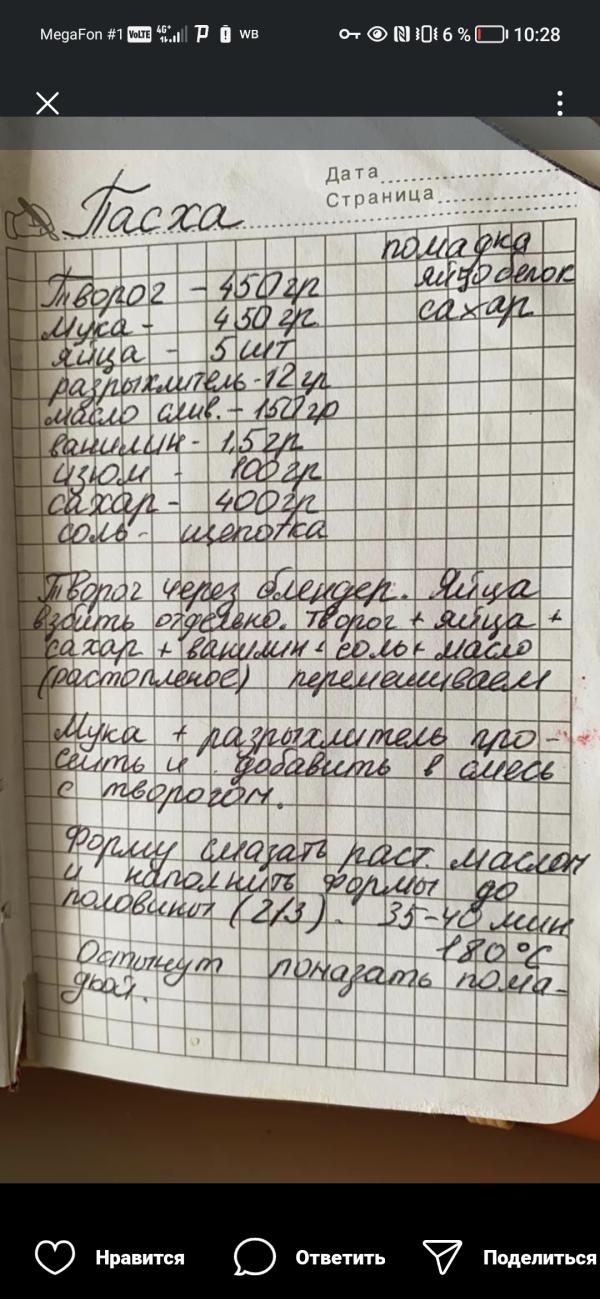 MegaFon #1 VoLTE 4G+ WB 6 % 10:28
Дата
Страница
Пасха
помадка
яйцо белок
сахар
Творог - 450 гр
Мука - 450 гр
яйца - 5 шт
разрыхлитель - 12 гр
масло слив. - 150 гр
ванилин - 1,5 гр
изюм - 100 гр
сахар - 400 гр
соль - щепотка
Творог через блендер. Яйца
взбить отдельно. Творог + яйца +
сахар + ванилин + соль + масло
(растопленое) перемешиваем
Мука + разрыхлитель про-
сеить и добавить в смесь
с творогом.
Форму смазать раст. маслом
и наполнить формы до
половины (2/3). 35-40 мин
180°C
Остынут помазать пома-
дкой.
Нравится Ответить Поделиться